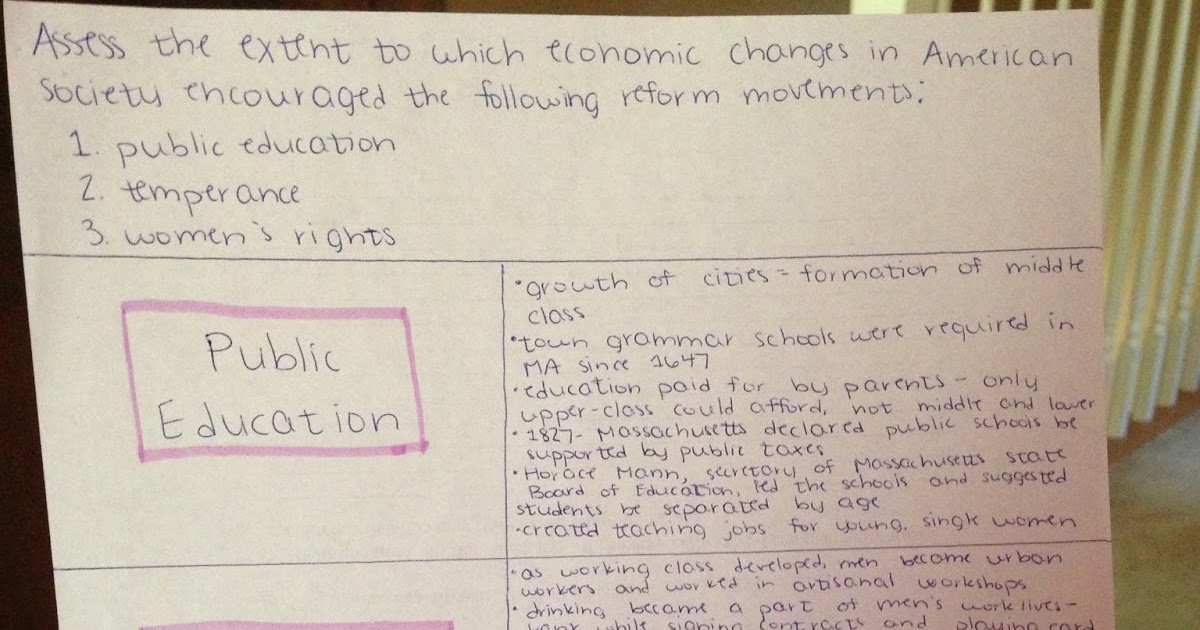 Assess the extent to which economic changes in American
society encouraged the following reform movements:
1. public education
2. temperance
3. women's rights
Public
Education
•growth of cities = formation of middle
class
•town grammar schools were required in
MA since 1647
•education paid for by parents - only
upper-class could afford, not middle and lower
•1827- Massachusetts declared public schools be
supported by public taxes
•Horace Mann, secretary of Massachusetts state
Board of Education, led the schools and suggested
students be separated by age
•created teaching jobs for young, single women
•as working class developed, men become urban
workers and worked in artisanal workshops
•drinking became a part of men's work lives-
while signing contracts and playing card